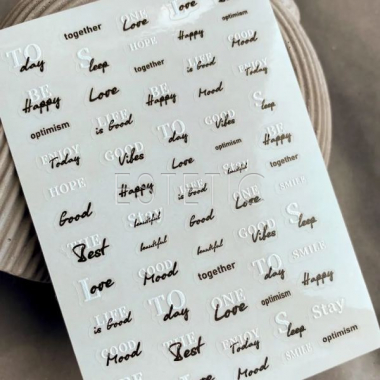 together
ONE
Love
Love
optimism
TO
day
Sleep
HOPE
Happy
GOOD
Mood
BE
Happy
Love
together
LIFE
is Good
ENJOY
Today
optimism
LIFE
is Good
BE
Happy
Mood
Sleep
ENJOY
Today
GOOD
Vibes
TO
day
GOOD
Vibes
optimism
BE
Happy
HOPE
Happy
Love
Stay
beautiful
together
ESTETIC
Good
Stay
beautiful
LIFE
is Good
ONE
Love
SMILE
THE
Best
beautiful
Good
GOOD
Vibes
Sleep
Love
GOOD
Mood
beautiful
together
TO
day
SMILE
LIFE
is Good
TO
day
ONE
Love
optimism
Happy
GOOD
Mood
THE
Best
ENJOY
Today
Sleep
Stay
Love
Mood
SMILE
optimism